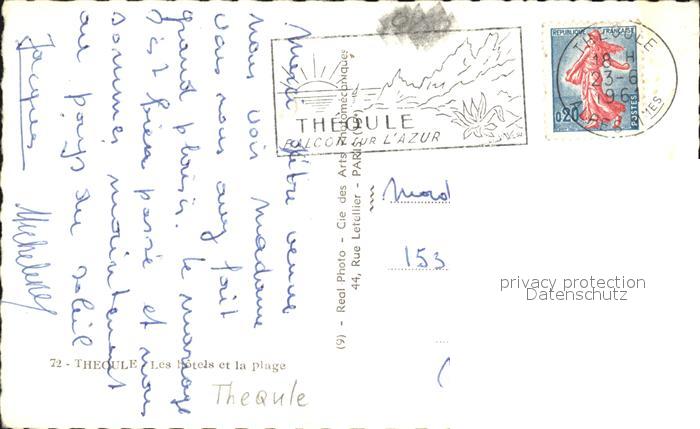 Merci d'être venue
nous voir madame
vous nous avez fait
grand plaisir. Le mariage
s'est bien passé et nous
sommes maintenant
au pays du soleil
Jacques Micheline
THEOULE
BALCON SUR L'AZUR
REPUBLIQUE FRANÇAISE
0,20
POSTES
THEOULE
18 H
23-6
196
MES
(9) - Real Photo - Cie des Arts Photomécaniques
44, Rue Letellier - PARIS
Mad
153
privacy protection
Datenschutz
72 - THEOULE Les hôtels et la plage
TheQule